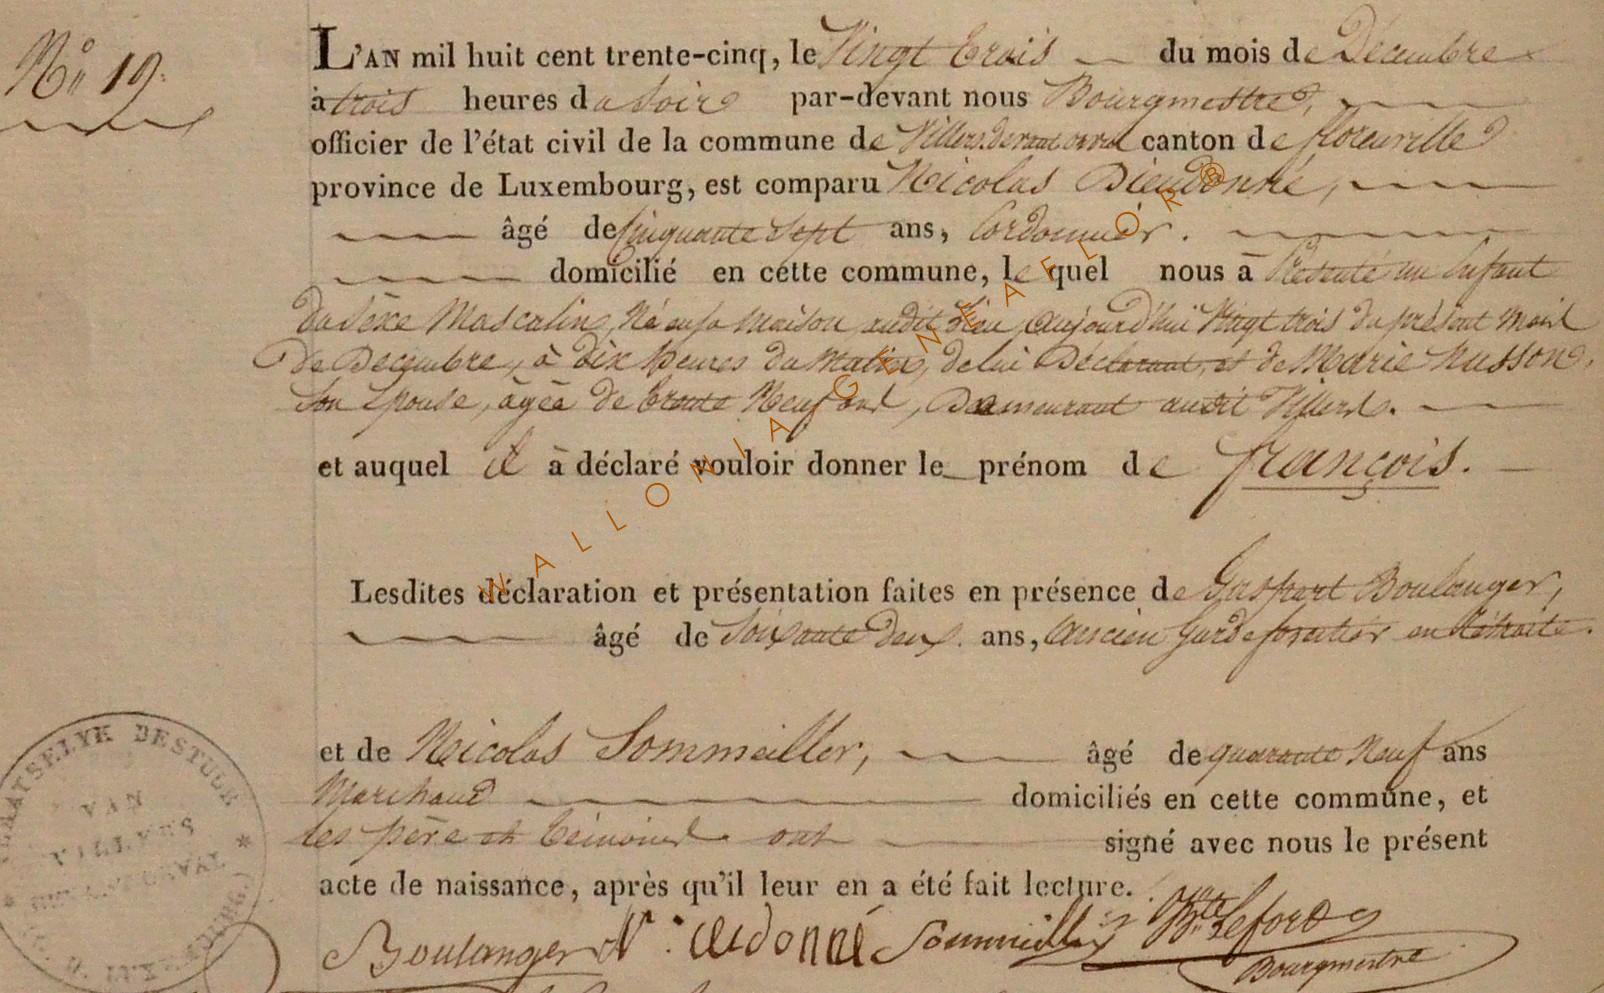 No 19.
L'AN mil huit cent trente-cinq, le Vingt trois du mois de Décembre
à trois heures du Soir par-devant nous Bourgmestre,
officier de l'état civil de la commune de Villers devant orval canton de florenville
province de Luxembourg, est comparu Nicolas Dieudonné,
âgé de Cinquante Sept ans, Cordonnier.
domicilié en cette commune, le quel nous à Présenté un Enfant
du Sexe Masculin, Né en sa maison audit lieu, aujourd'hui Vingt trois du présent Mois
de Decembre, à dix heures du Matin, de lui Déclarant, et de Marie Husson,
Son Epouse, âgée de trente Neuf ans, Demeurant audit Villers.
et auquel il à déclaré vouloir donner le prénom de françois.
Lesdites déclaration et présentation faites en présence de Gaspart Boulanger,
âgé de Soixante deux ans, Ancien Garde forestier en Retraite.
et de Nicolas Sommeiller, âgé de quarante Neuf ans
Marchand domiciliés en cette commune, et
les père et témoins ont signé avec nous le présent
acte de naissance, après qu'il leur en a été fait lecture.
Boulanger N: dieudonné Sommeiller
Bourgmestre
PLAATSELYK BESTUUR
VAN
VILLERS
WALLONIA GENEALOR®